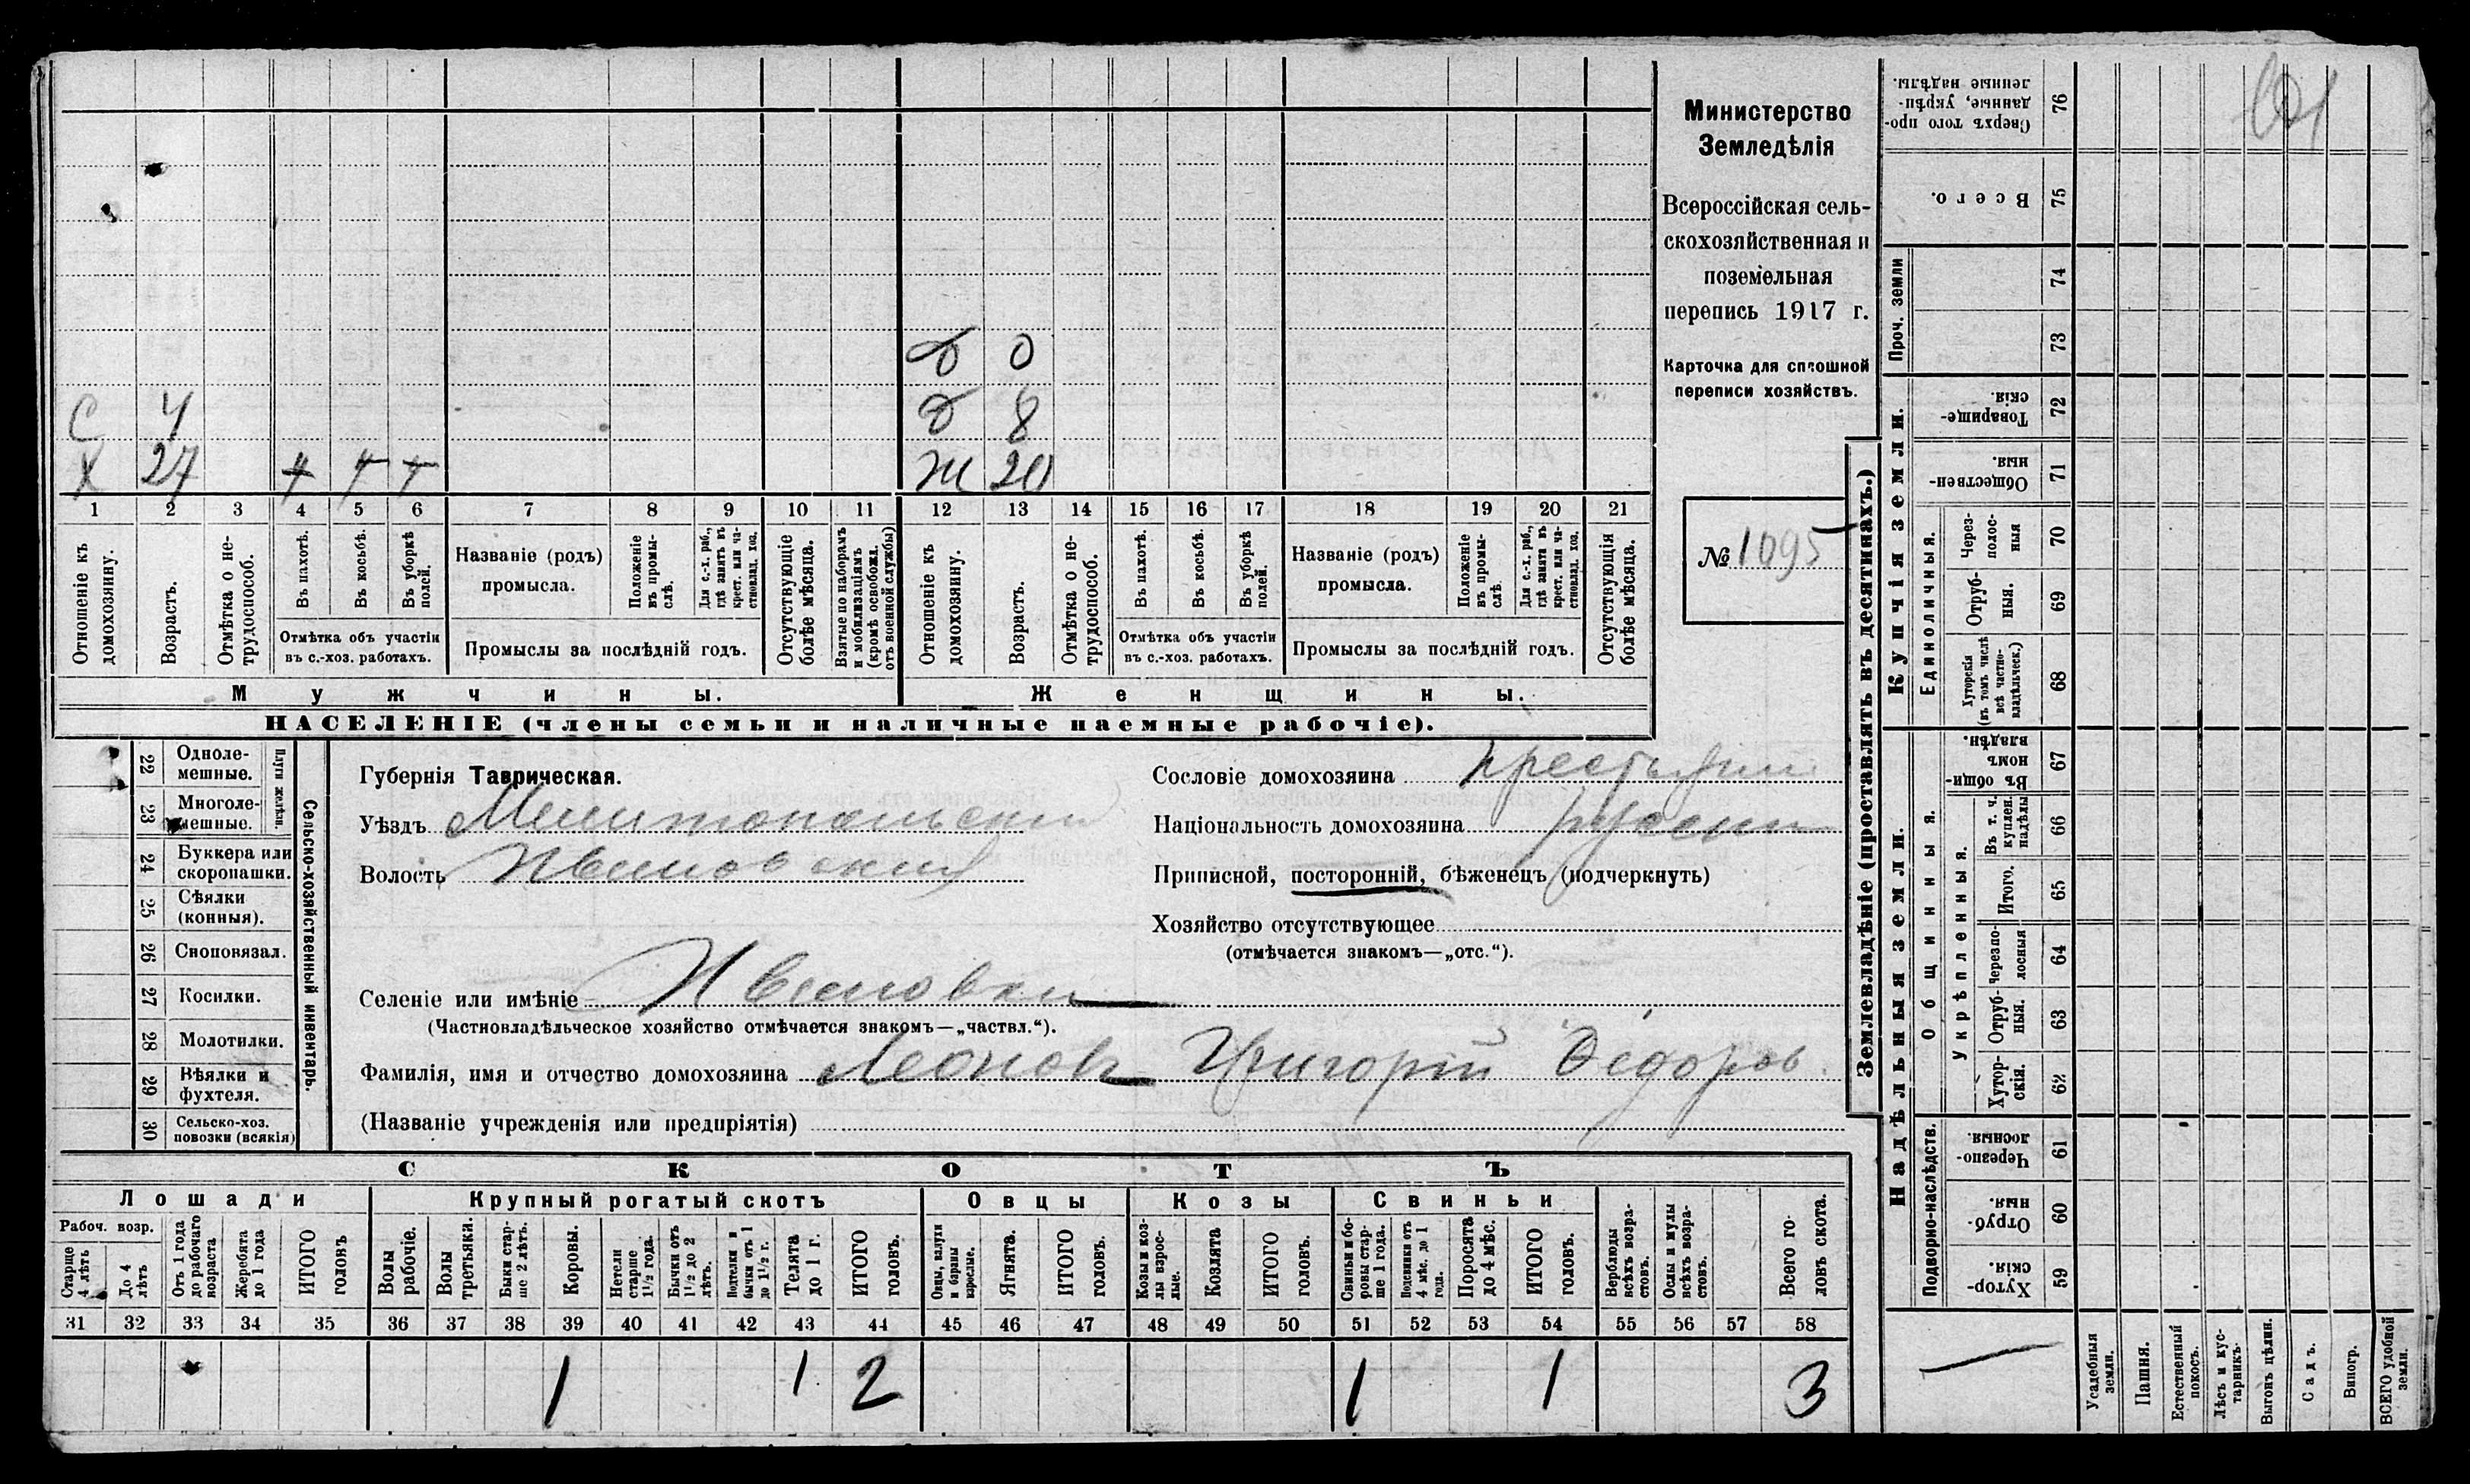 Министерство
Земледѣлія
Всероссійская сель-
скохозяйственная и
поземельная
перепись 1917 г.
Карточка для сплошной
переписи хозяйствъ.
№ 1095
б 0
С 4 д 8
Х 27 + + + Ж 20
1 2 3 4 5 6 7 8 9 10 11 12 13 14 15 16 17 18 19 20 21
Отношеніе къ домохозяину.
Возрастъ.
Отмѣтка о не-трудоспособ.
Въ пахотѣ.
Въ косьбѣ.
Въ уборкѣ полей.
Отмѣтка объ участіи
въ с.-хоз. работахъ.
Названіе (родъ)
промысла.
Положеніе въ промы-слѣ.
Для с.-х. раб., гдѣ занятъ въ крест. или ча-стновлад. хоз.
Промыслы за послѣдній годъ.
Отсутствующіе болѣе мѣсяца.
Взятые по наборамъ и мобилизаціямъ (кромѣ освобожд. отъ военной службы)
Отношеніе къ домохозяину.
Возрастъ.
Отмѣтка о не-трудоспособ.
Въ пахотѣ.
Въ косьбѣ.
Въ уборкѣ полей.
Отмѣтка объ участіи
въ с.-хоз. работахъ.
Названіе (родъ)
промысла.
Положеніе въ промы-слѣ.
Для с.-х. раб., гдѣ занята въ крест. или ча-стновлад. хоз.
Промыслы за послѣдній годъ.
Отсутствующія болѣе мѣсяца.
Мужчины.
Женщины.
НАСЕЛЕНІЕ (члены семьи и наличные наемные рабочіе).
Сельско-хозяйственный инвентарь.
Плуги желѣзн.
22 Одноле-мешные.
23 Многоле-мешные.
24 Буккера или скоропашки.
25 Сѣялки (конныя).
26 Сноповязал.
27 Косилки.
28 Молотилки.
29 Вѣялки и фухтеля.
30 Сельско-хоз. повозки (всякія)
Губернія Таврическая.
Уѣздъ Мелитопольскій
Волость Ивановская
Сословіе домохозяина крестьянин
Національность домохозяина русский
Приписной, посторонній, бѣженецъ (подчеркнуть)
Хозяйство отсутствующее
(отмѣчается знакомъ—„отс.“).
Селеніе или имѣніе Ивановка
(Частновладѣльческое хозяйство отмѣчается знакомъ—„частвл.“).
Фамилія, имя и отчество домохозяина Леоновъ Григорій Федоров.
(Названіе учрежденія или предпріятія)
СКОТЪ
Лошади
Крупный рогатый скотъ
Овцы
Козы
Свиньи
Рабоч. возр.
Старше 4 лѣтъ
До 4 лѣтъ
Отъ 1 года до рабочаго возраста
Жеребята до 1 года
ИТОГО головъ
Волы рабочіе.
Волы третьяки.
Быки стар-ше 2 лѣтъ.
Коровы.
Нетели старше 1 1/2 года.
Бычки отъ 1 1/2 до 2 лѣтъ.
Подтелки и бычки отъ 1 до 1 1/2 г.
Телята до 1 г.
ИТОГО головъ.
Овцы, валухи и бараны взрослые.
Ягнята.
ИТОГО головъ.
Козы и коз-лы взрос-лые.
Козлята
ИТОГО головъ.
Свиньи и бо-ровы стар-ше 1 года.
Подсвинки отъ 4 мѣс. до 1 года.
Поросята до 4 мѣс.
ИТОГО головъ.
Верблюды всѣхъ возра-стовъ.
Ослы и мулы всѣхъ возра-стовъ.
Всего го-ловъ скота.
31 32 33 34 35 36 37 38 39 40 41 42 43 44 45 46 47 48 49 50 51 52 53 54 55 56 57 58
1 1 2 1 1 3
Землевладѣніе (проставлять въ десятинахъ.)
Сверхъ того про-данные, укрѣп-ленные надѣлы. 76
Всего. 75
Проч. земли 74
73
Купчія земли.
Товарище-скія. 72
Обществен-ныя. 71
Единоличныя.
Через-полос-ныя 70
Отруб-ныя. 69
Хуторскія (въ томъ числѣ всѣ частно-владѣльческ.) 68
Надѣльныя земли.
Общинныя.
Въ общин-номъ владѣн. 67
Укрѣпленныя.
Въ т. ч. куплен. надѣлы 66
Итого. 65
Черезпо-лосныя 64
Отруб-ныя. 63
Хутор-скія. 62
Подворно-наслѣдств.
Черезпо-лосныя. 61
Отруб-ныя. 60
Хутор-скія. 59
Усадебныя земли.
Пашня.
Естественный покосъ.
Лѣсъ и кус-тарникъ.
Выгонъ цѣлин.
Садъ.
Виногр.
ВСЕГО удобной земли.